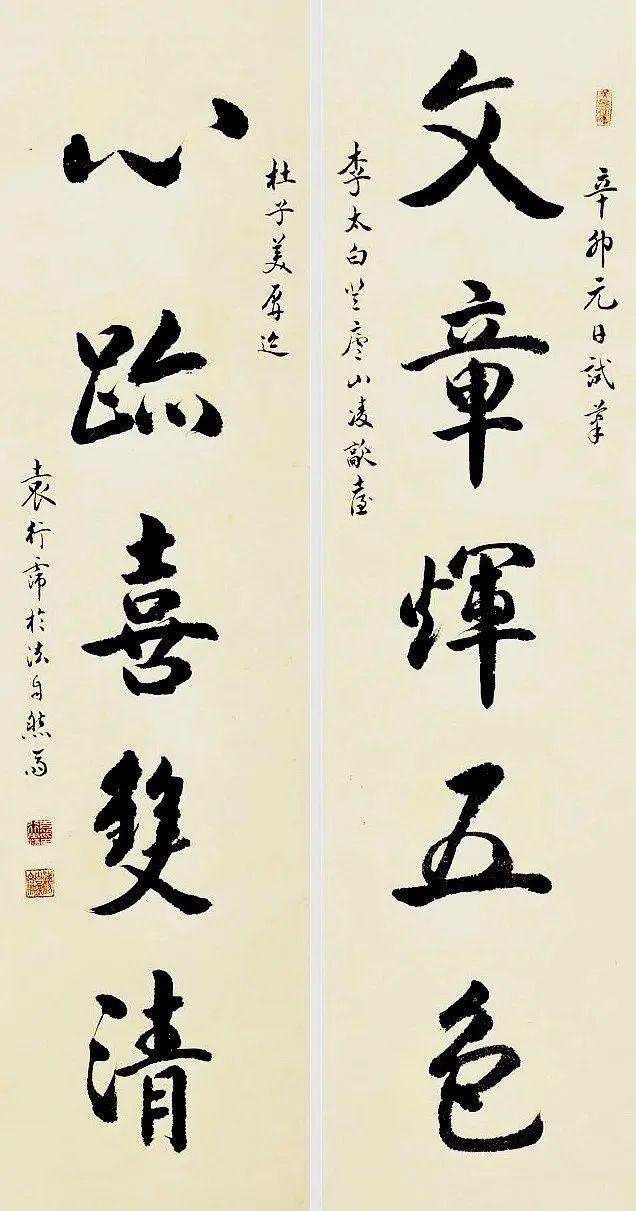 辛卯元日試筆
文章輝五色
李太白登廬山凌歊臺
杜子美屏迹
心跡喜雙清
袁行霈於法自然齋